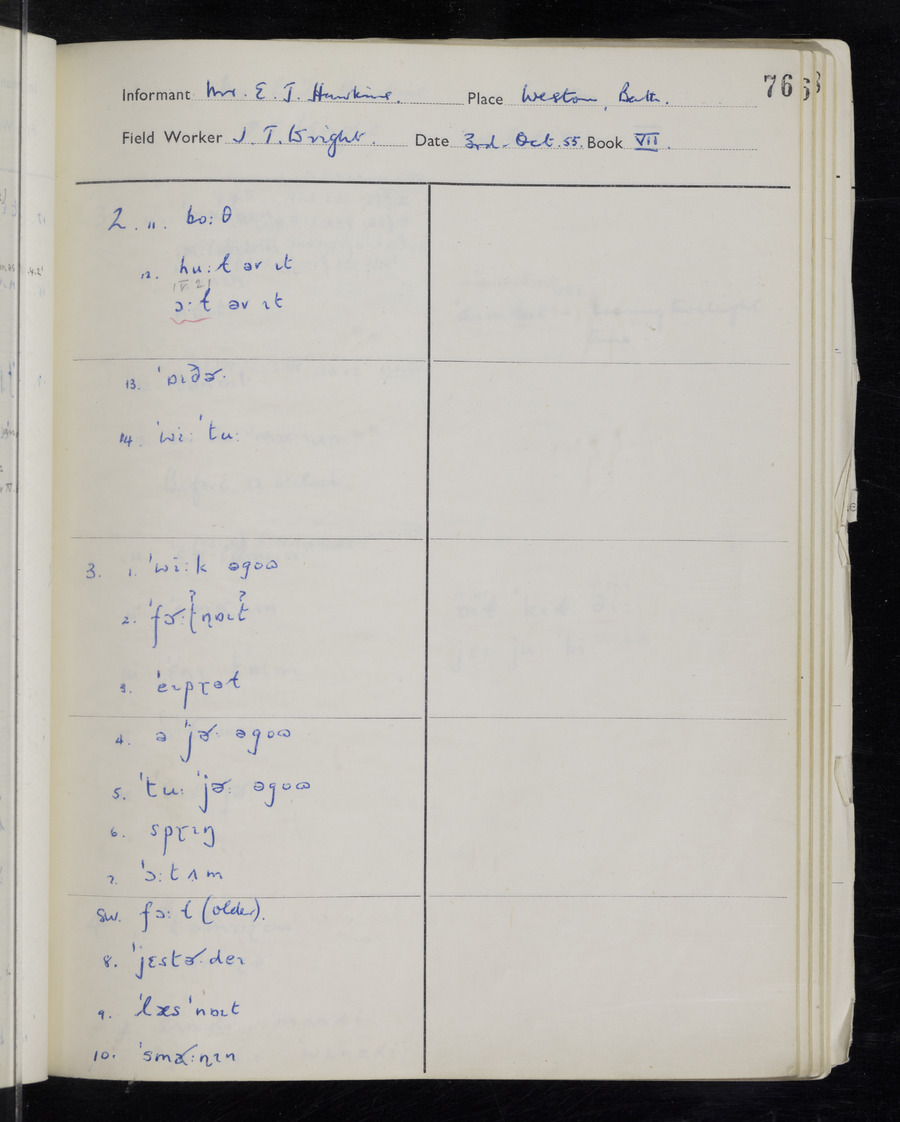 Informant Mr. E. J. Hawkins. Place Weston, Bath. 76
Field Worker J. T. Wright. Date 3rd. Oct. 55. Book VII.
2. 11. bo:θ
12. hu:ɫ əv ɪt
IV 2
ɔ:ɫ əv ɪt
13. ˈɒɪðɚ.
14. ˈwi: ˈtu:
3. 1. ˈwi:k əgoɷ
2. ˈfɚ:tnɒɪt
3. ˈeɪpɽəɫ
4. ə ˈjɚ: əgoɷ
5. ˈtu: ˈjɚ: əgoɷ
6. spɽɪŋ
7. ˈɔ:tʌm
SW. fɔ:ɫ (older).
8. ˈjɛstɚ·deɪ
9. ˈlæs ˈnɒɪt
10.